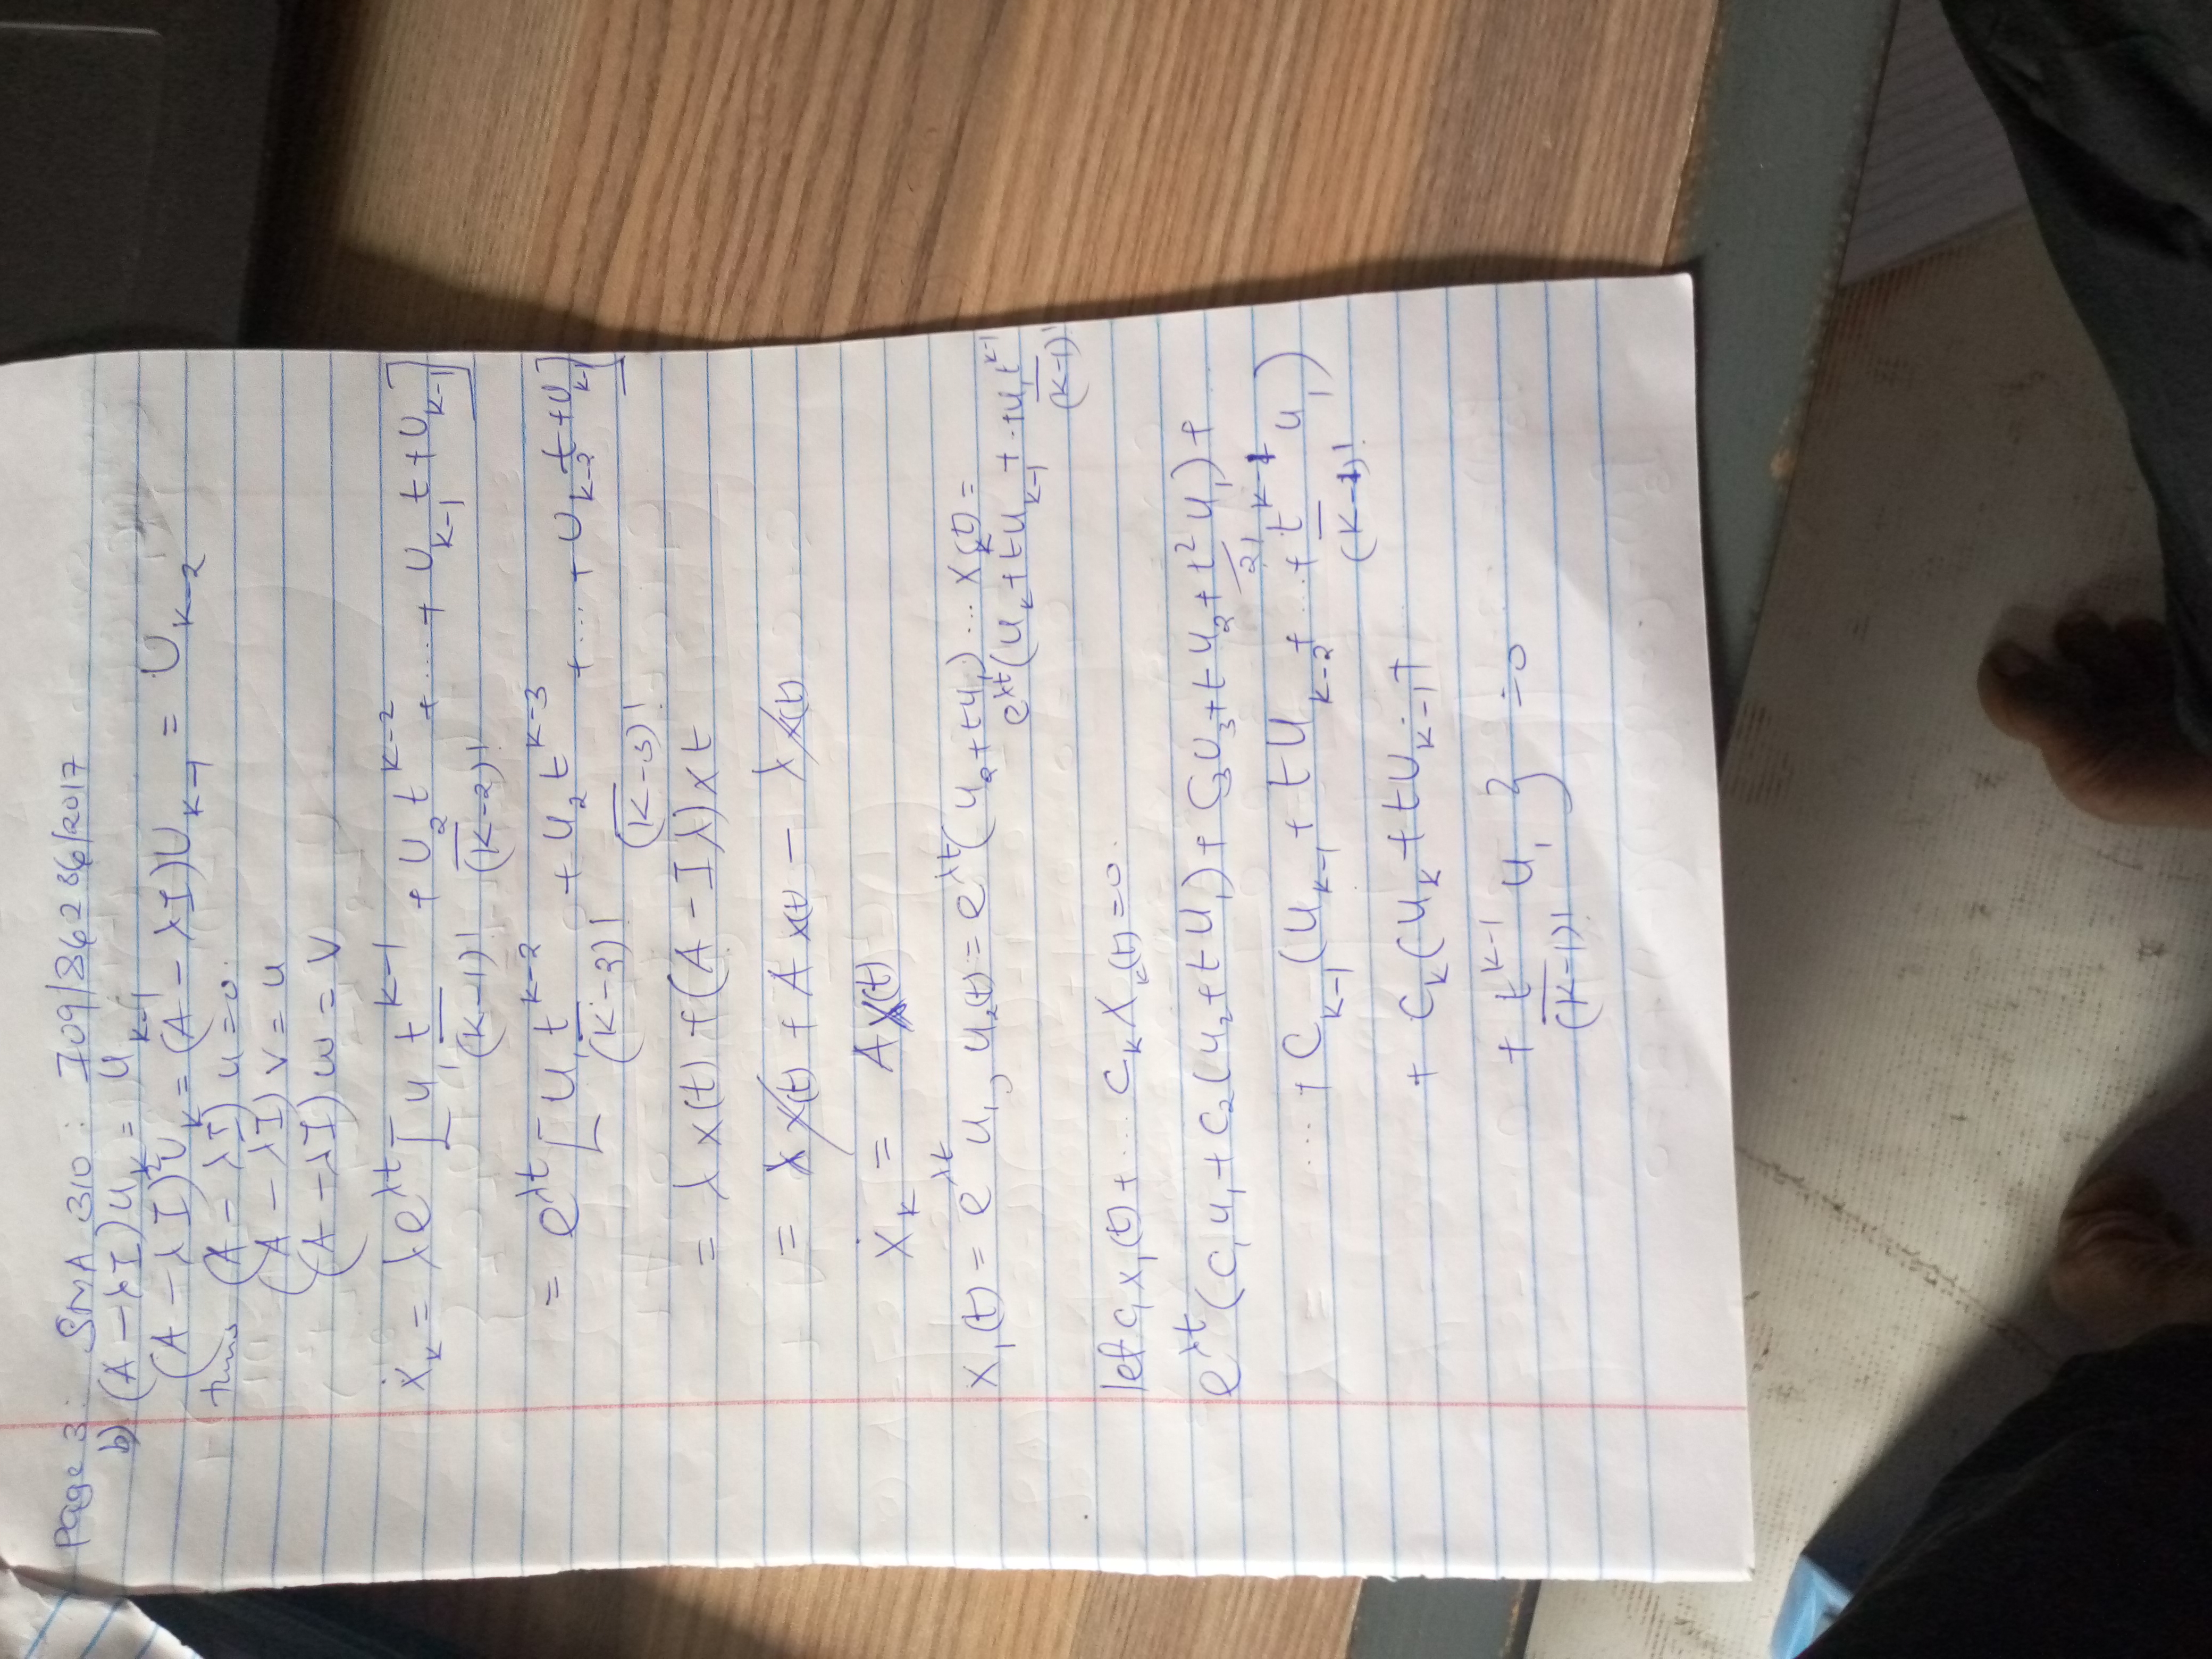 Page 3: SMA 310: I09/86236/2017
b) (A - λI)u_k = u_{k-1}
(A - λI)²u_k = (A - λI)u_{k-1} = u_{k-2}
thus (A - λI)u = 0.
(A - λI)v = u
(A - λI)w = v
ẋ_k = λe^{λt}[u_1 t^{k-1}/(k-1)! + u_2 t^{k-2}/(k-2)! + .... + u_{k-1} t + u_{k-1}]
= e^{λt}[u_1 t^{k-2}/(k-3)! + u_2 t^{k-3}/(k-3)! + ..... + u_{k-2} t + u_{k-1}]
= λx(t) + (A - Iλ)xt
= λx(t) + Ax(t) - λx(t)
ẋ_k = Ax(t)
x_1(t) = e^{λt}u_1, u_2(t) = e^{λt}(u_2 + tu_1) ... x_k(t) =
e^{λt}(u_k + tu_{k-1} + ..+ u_1 t^{k-1}/(k-1)!
let c_1x_1(t) + .... c_k x_k(t) = 0.
e^{λt}(c_1u_1 + c_2(u_2 + tu_1) + c_3u_3 + tu_2 + t²/2! u_1) +
.... + c_{k-1}(u_{k-1} + tu_{k-2} + ...+ t^{k-1}/(k-1)! u_1)
+ c_k(u_k + tu_{k-1} +
+ t^{k-1}/(k-1)! u_1 } = 0